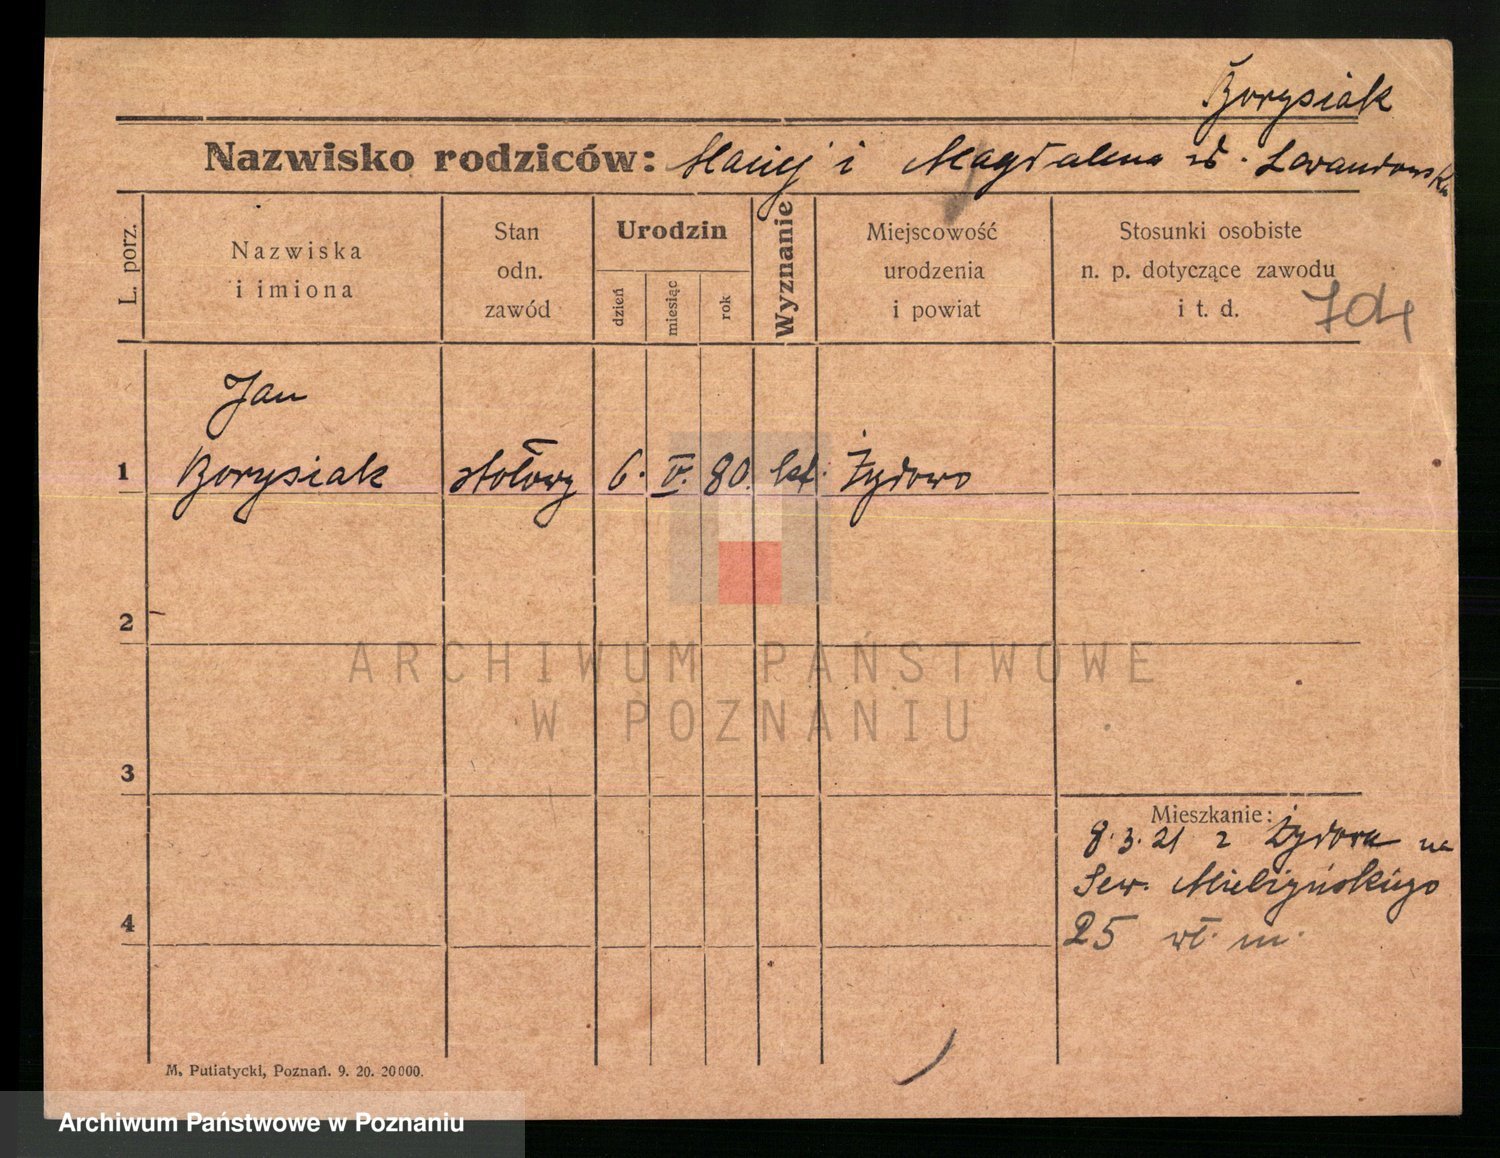 Borysiak
Nazwisko rodziców: Maciej i Magdalena z d. Lewandowska
L. porz.
Nazwiska
i imiona
Stan
odn.
zawód
Urodzin
dzień
miesiąc
rok
Wyznanie
Miejscowość
urodzenia
i powiat
Stosunki osobiste
n. p. dotyczące zawodu
i t. d.
Jan
1 Borysiak 6. V. 80. kat. Żydowo
2
3
4
Mieszkanie:
8.3.21 z Żydowa na
Sew. Mielżyńskiego
25 wł. m.
M. Putiatycki, Poznań. 9. 20. 20000.
ARCHIWUM PAŃSTWOWE
W POZNANIU
Archiwum Państwowe w Poznaniu